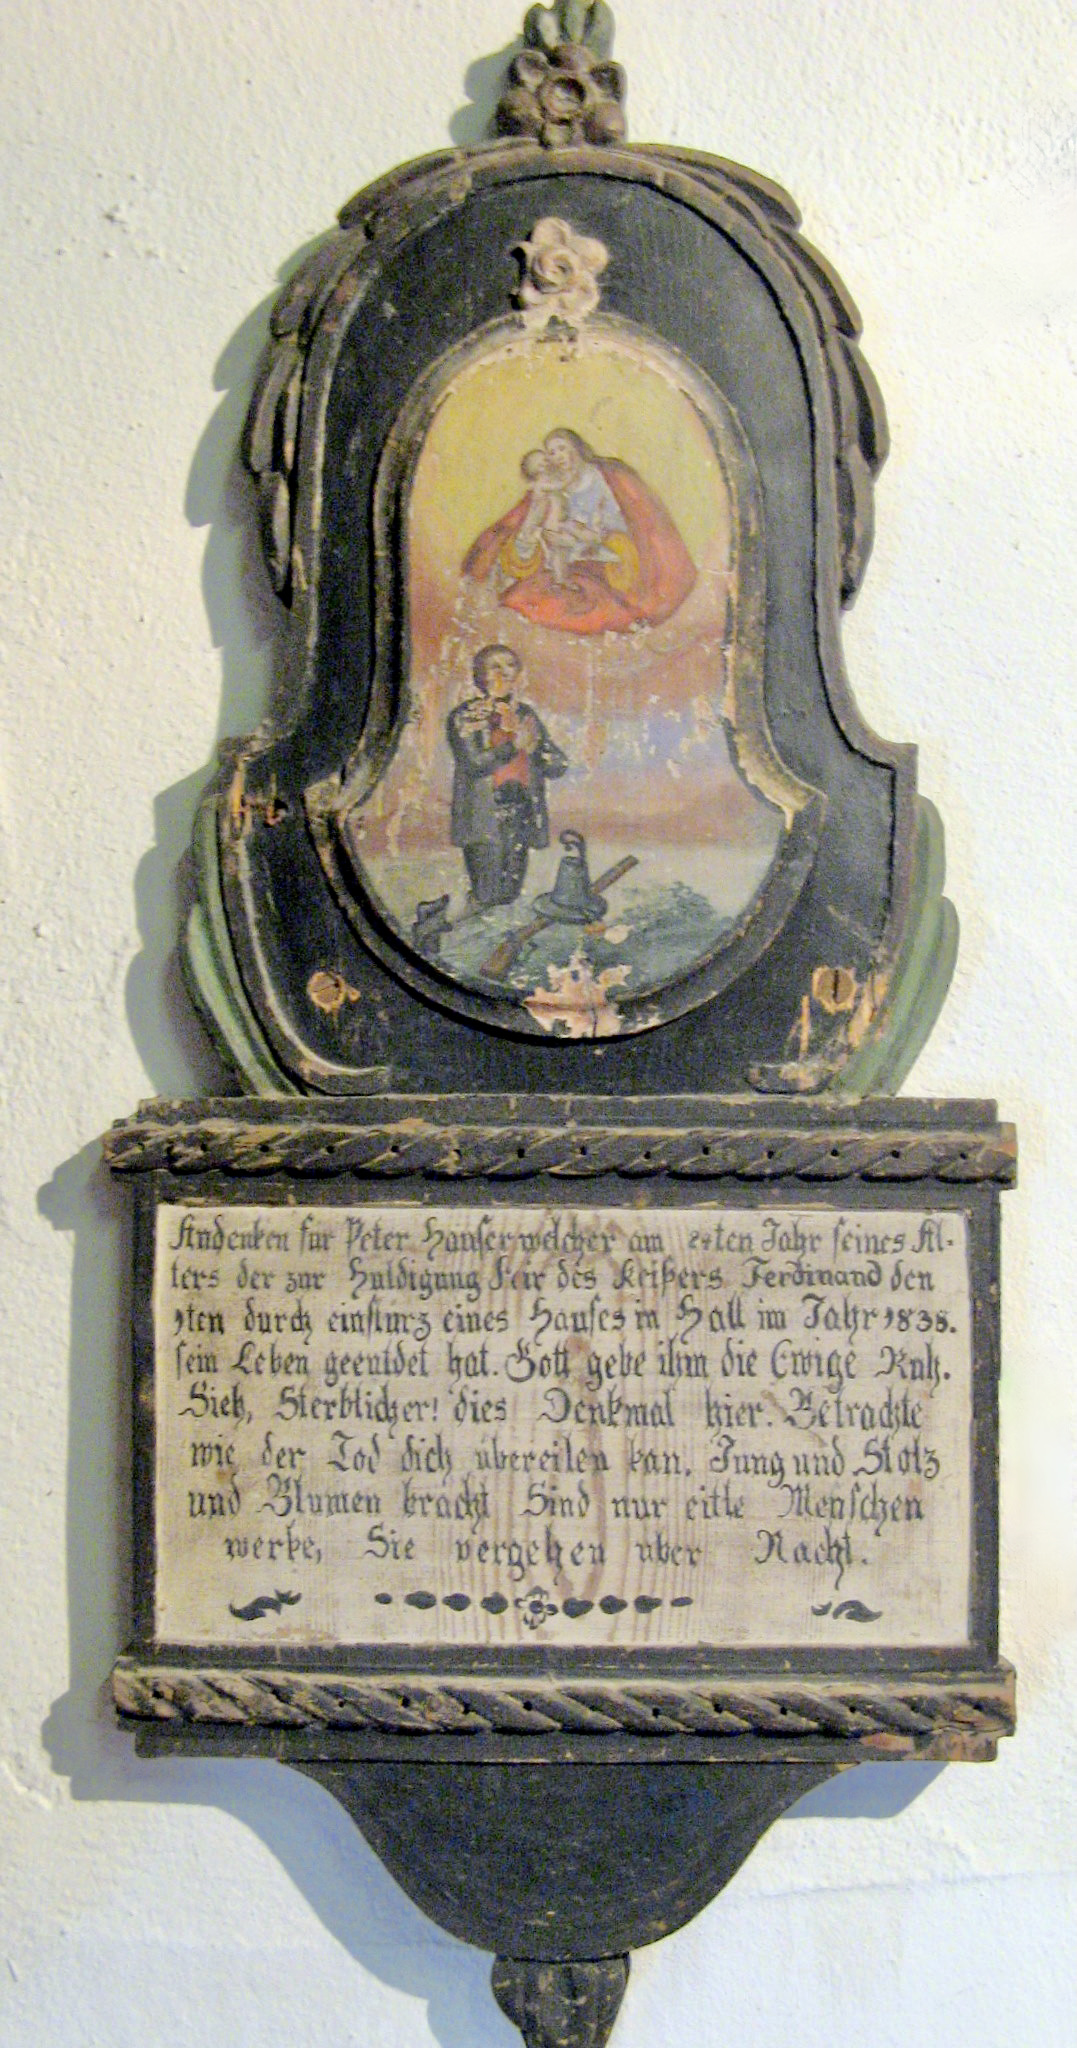 Andenken für Peter Hauser welcher am 24ten Jahr seines Al-
ters der zur Huldigung Feir des Keißers Ferdinand den
9ten durch einsturz eines Hauses in Hall im Jahr 1838.
sein Leben geentdet hat. Gott gebe ihm die Ewige Ruh.
Sieh, Sterblicher! dies Denkmal hier. Betrachte
wie der Tod dich übereilen kan. Jung und Stolz
und Blumen bracht Sind nur eitle Menschen
werke, Sie vergehen uber Nacht.